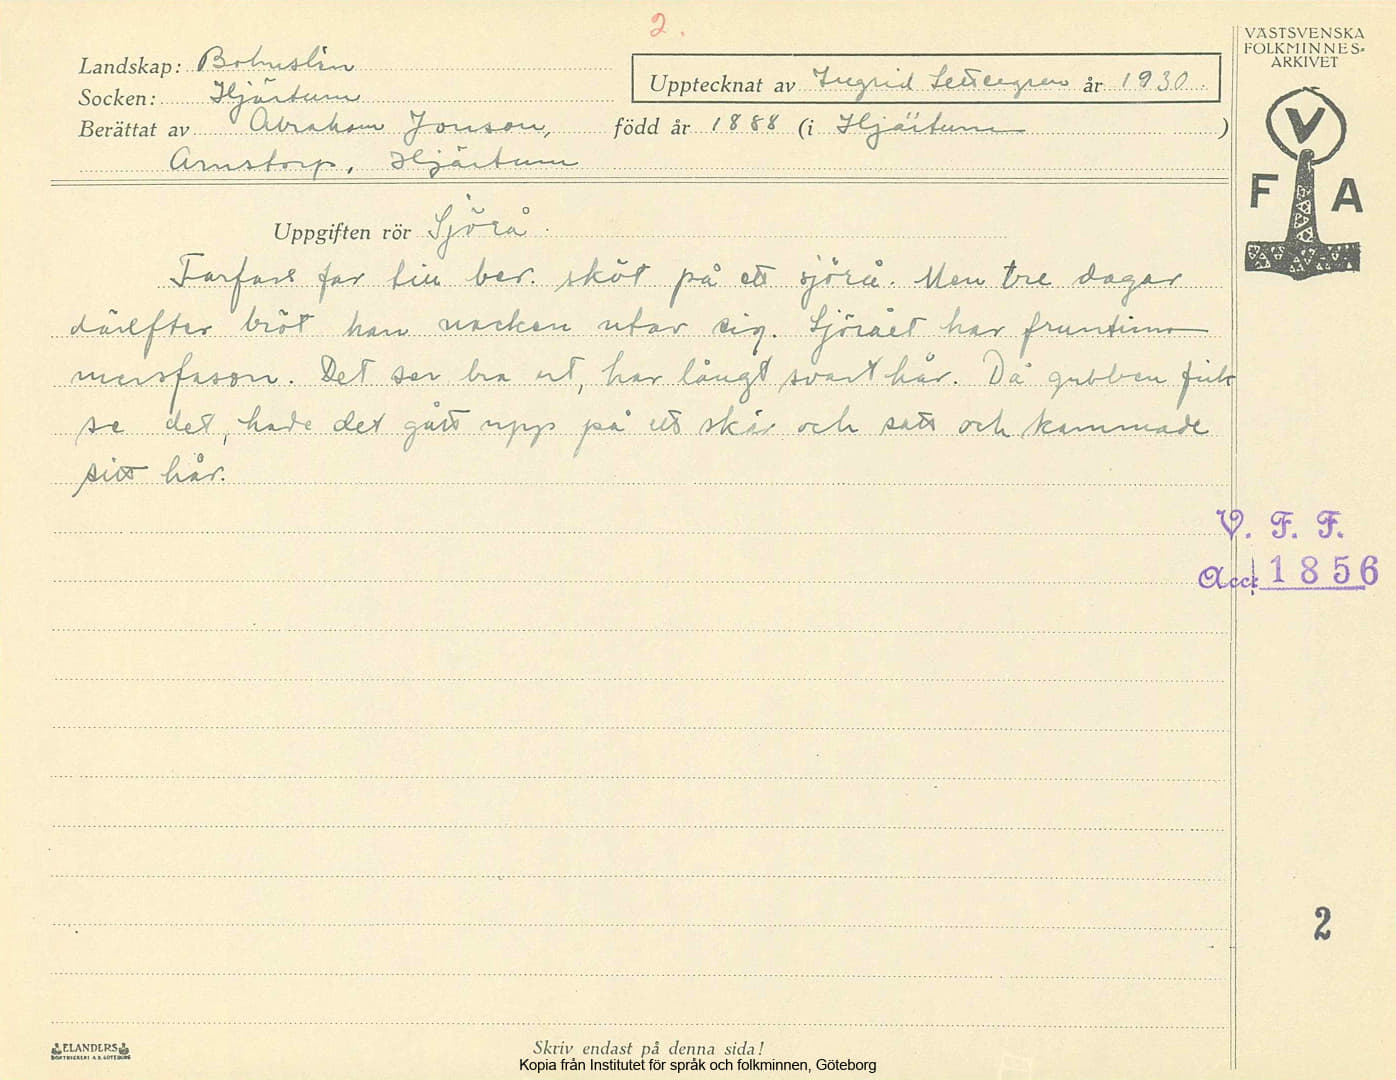 2.
VÄSTSVENSKA
FOLKMINNES-
ARKIVET
Landskap: Bohuslän
Upptecknat av Ingrid Settergren år 1930.
Socken: Hjärtum
Berättat av Abraham Jonson, född år 1888 (i Hjärtum)
Arnstorp, Hjärtum
V
F A
Uppgiften rör Sjörå.
Farfars far till ber. sköt på ett sjörå. Men tre dagar
därefter bröt han nacken utav sig. Sjörået har fruntim-
mersfason. Det ser bra ut, har långt svart hår. Då gubben fick
se det, hade det gått upp på ett skär och satt och kammade
sitt hår.
V. F. F.
Acc: 1856
2
ELANDERS
BOKTRYCKERI A.B. GÖTEBORG
Skriv endast på denna sida!
Kopia från Institutet för språk och folkminnen, Göteborg